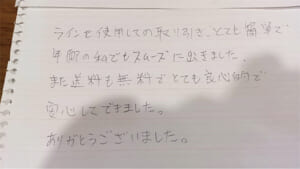 ラインを使用しての取り引き、とても簡単で
年配の私でもスムーズに出きました。
また送料も無料でとても良心的で
安心してできました。
ありがとうございました。